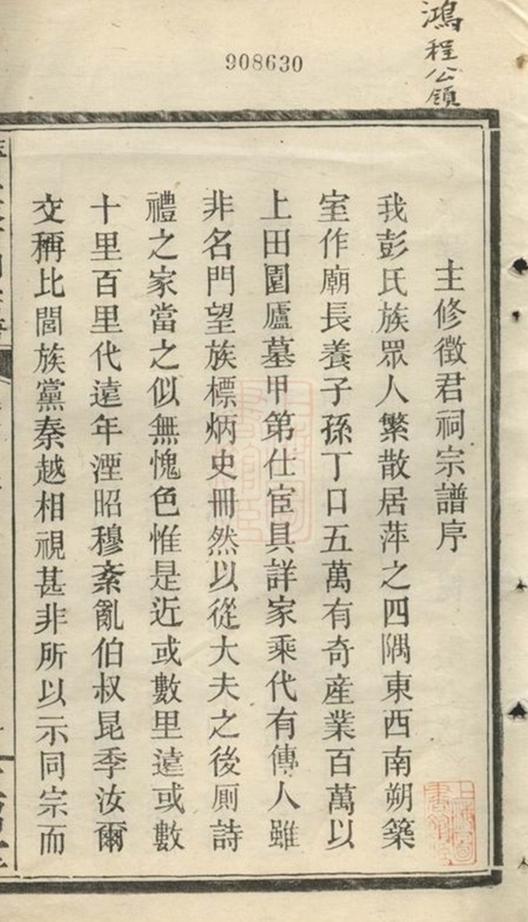 908630
鴻程公領
主修徵君祠宗譜序
我彭氏族眾人繁散居萍之四隅東西南朔築
室作廟長養子孫丁口五萬有奇産業百萬以
上田園廬墓甲第仕宦具詳家乘代有傳人雖
非名門望族標炳史冊然以從大夫之後厠詩
禮之家當之似無愧色惟是近或數里遠或數
十里百里代遠年湮昭穆紊亂伯叔昆季汝爾
交稱比閭族黨秦越相視甚非所以示同宗而